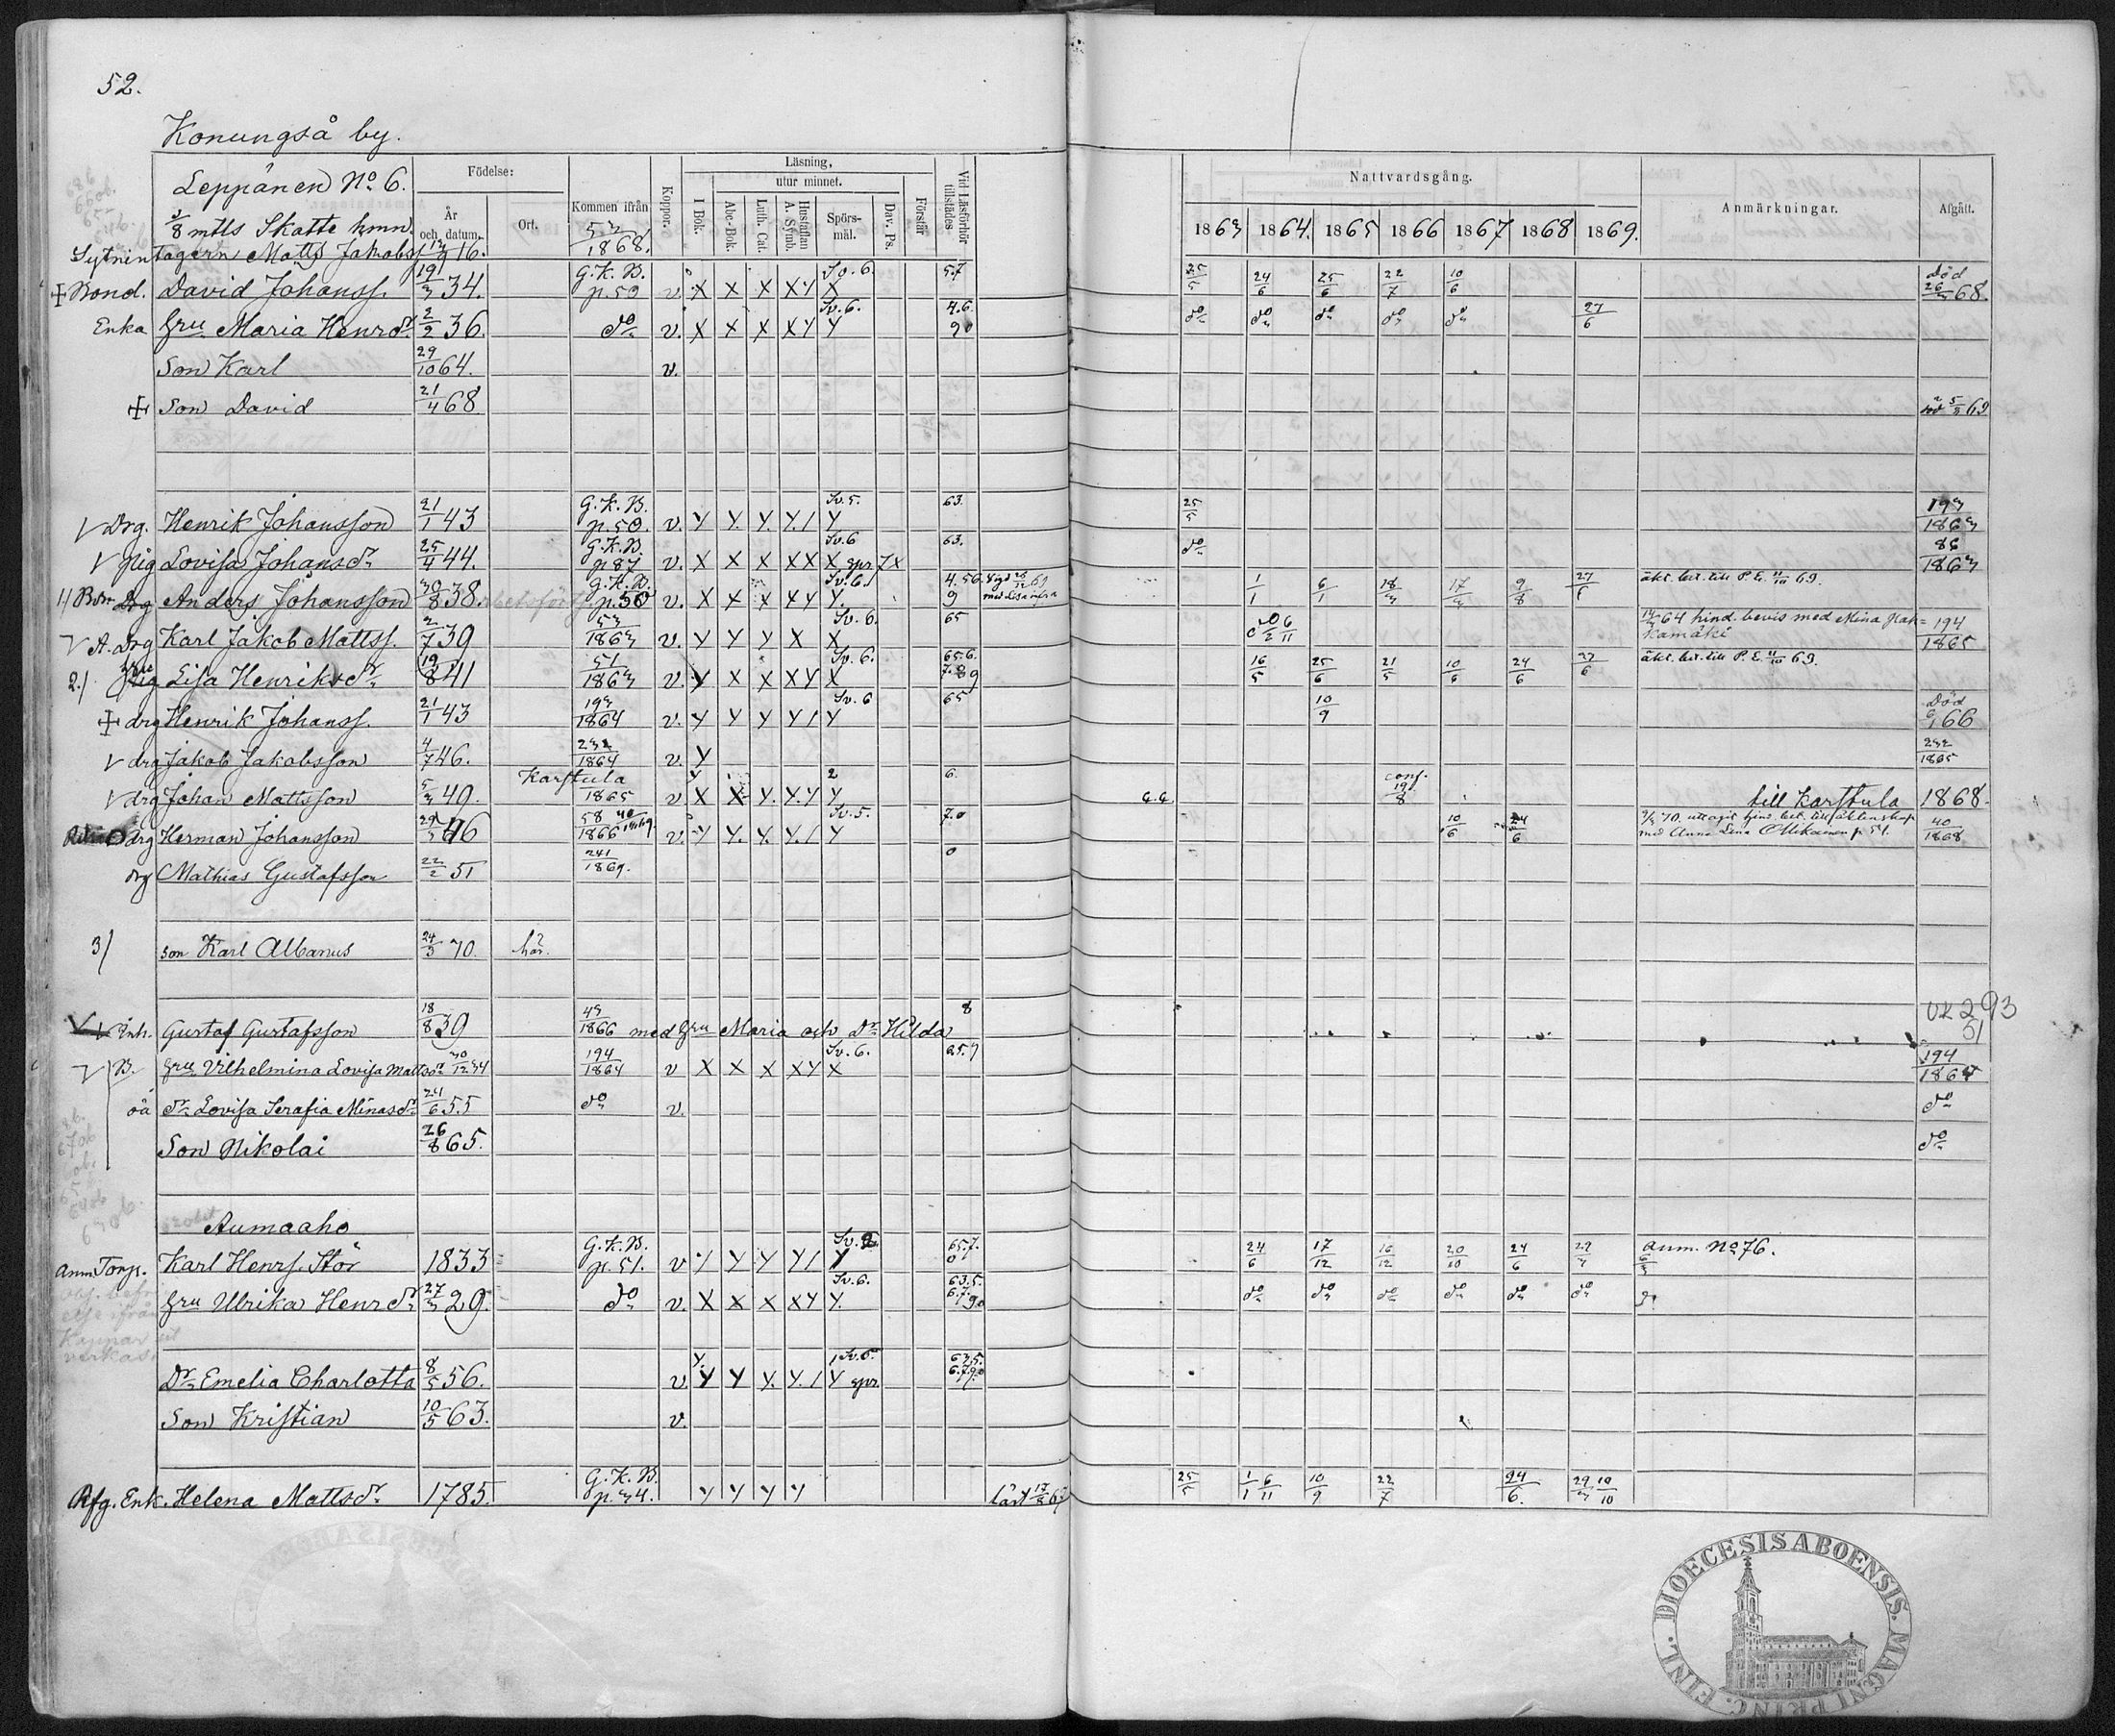 52.
Konungså by.
Leppänen No 6.
3/8 mtls Skatte hmn.
Födelse:
År och datum.
Ort.
Kommen ifrån
Koppor.
Läsning,
utur minnet.
I Bok.
Abc-Bok.
Luth. Cat.
Hustaflan A. Symb.
Spörsmål.
Dav. Ps.
Förstår
Vid Läsförhör tillstädes
Nattvardsgång.
1863 1864. 1865 1866 1867 1868 1869.
Anmärkningar.
Afgått.
Sytnintagern Matts Jakobss. 16. 53/1868.
Bond. David Johanss. 19/3 34. G.K.B. p.50 v. X X X XY X Sv.6. 5.7 25/5 24/6 25/6 22/7 10/6 död 26/3 68.
Enka hru Maria Henrsdr 2/2 36. do v. X X X XY Y Sv.6. 4.6. 90 do do do do do 27/6
Son Karl 29/10 64. v.
Son David 21/4 68 död 5/2 69
Drg. Henrik Johansson 21/1 43 G.K.B. p.50. v. Y Y. Y. Y./ Y Sv.5. 63. 25/5 193/1863
Pig Lovisa Johansdr 25/4 44. G.K.B. p 87 v. X X X XX X spr 7x Sv.6 63. do 86/1863
1) Bon Drg Anders Johansson 30/8 38. G.K.B. p.50 v. X X X XY Y. Sv.6. 4.56. 9 1/1 6/1 18/3 17/3 9/8 27/6 äkt. bet. till P.E. 11/10 69.
A. drg Karl Jakob Mattss. 2/7 39 53/1863 v. Y Y Y X X Sv.6. 65 do 6/11 14/7 64 hind. bevis med Mina Hakamäki 194/1865
2.) Pig Lisa Henriksdr 19/8 41 51/1863 v. Y X X XY X Sv.6. 65.6. 7.89 16/5 25/6 21/5 10/6 24/6 27/6 äkt. bet. till P.E. 11/10 69.
drg Henrik Johanss. 21/1 43 193/1864 v. Y Y Y Y/ Y Sv.6 65 10/9 Död 66
drg Jakob Jakobsson 4/7 46. 232/1864 v. Y 232/1865
drg Johan Mattsson 5/3 49. Karstula 1865 v X X Y. Y.Y Y 2 6. 6.6. conf. 19/8 till Karstula 1868.
drg Herman Johansson 46 58/1866 40/1869. v. Y Y. Y. Y./ Y Sv.5. 7.0 10/6 24/6 70. uttagit hind. bet. till äktenskap med Anna Lena p 51. 40/1868
drg Mathias Gustafsson 22/2 51 241/1869. 0
3) son Karl Albanus 24/3 70. här.
Inh. Gustaf Gustafsson 18/8 39 1866 med hru Maria och Dr Hilda 8 UK 293 51
B. hru Vilhelmina Lovisa Mattsdr 30/12 34 194/1864 v X X X XY X Sv.6. 25.7 194/1867
oä dr Lovisa Serafia Minasdr 24/6 55 do v. do
Son Nikolai 26/8 65. do
Aumaaho
Torp. Karl Henrs. Stör 1833 G.K.B. p. 51. v Y Y Y Y/ Y 65.7. 0 24/6 17/12 16/12 20/10 24/6 anm. No 76.
hru Ulrika Henrsdr 27/3 29. do v. X X X XY Y. Sv.6. 63.5. 6.7. 90 do do do do do do
Dr Emelia Charlotta 8/5 56. v. Y Y Y. Y./ Y spr. 63.5. 6.7.9.0
Son Kristian 10/5 63. v.
Enk. Helena Mattsdr 1785. G.K.B. p. 34. Y Y Y Y läst 17/8 25/5 1/1 6/11 10/9 22/7 24/6. 29/3 10/10
DIOECESIS ABOENSIS. MAGNI PRINC. FINL.